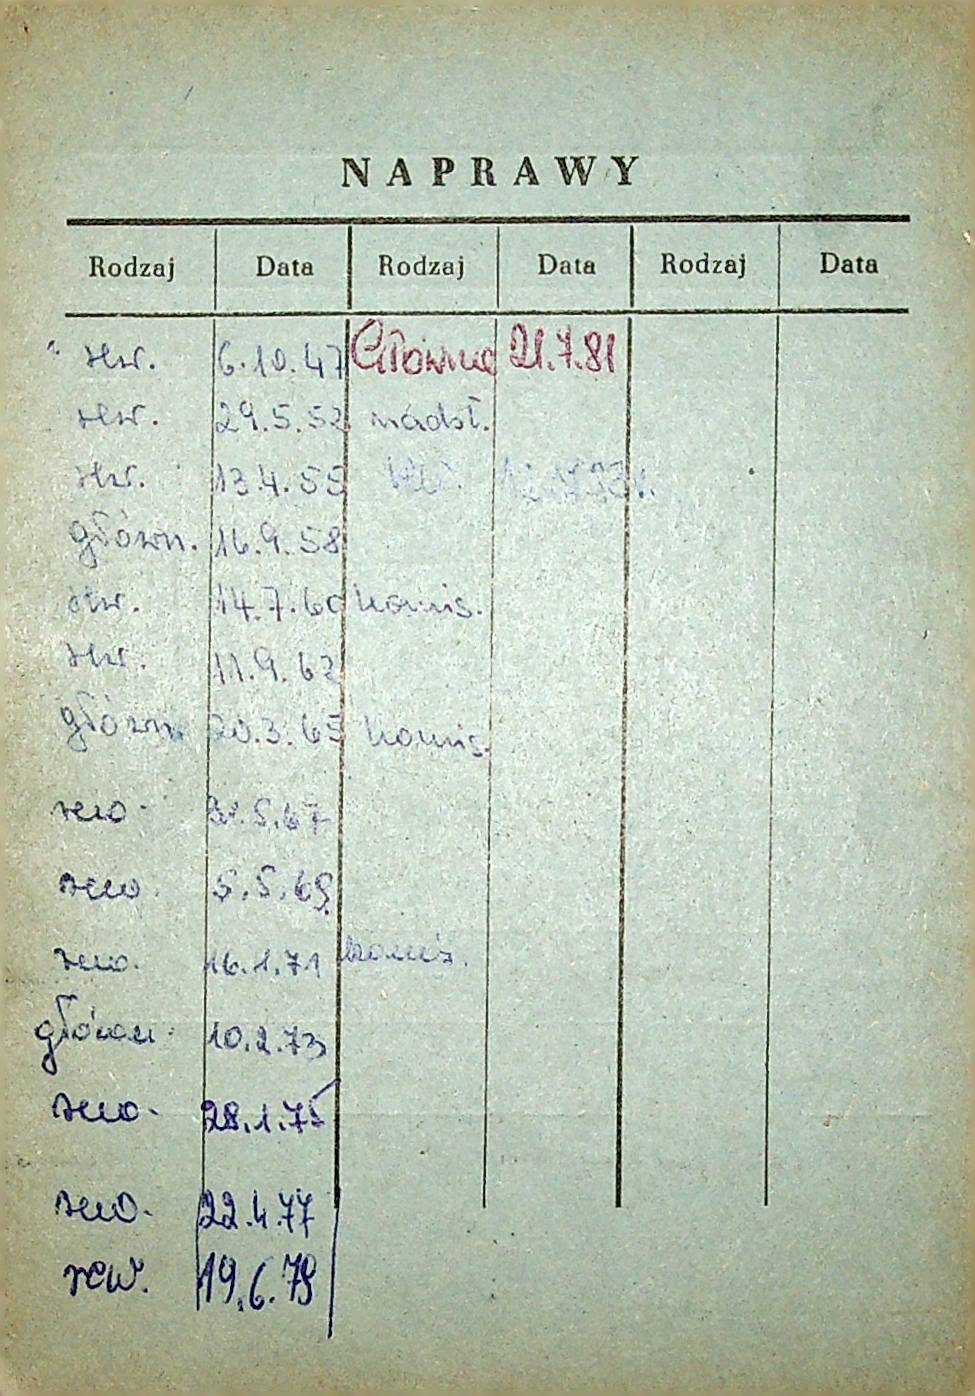 NAPRAWY
Rodzaj Data Rodzaj Data Rodzaj Data
rew. 6.10.47 Główna 21.7.81
rew. 29.5.52 nadst.
rew. 13.4.55
główn. 16.9.58
rew. 14.7.60 komis.
rew. 11.9.62
główn. 20.3.65 komis.
rew. 5.67
rew. 5.5.69
rew. 16.1.71 komis.
główn. 10.2.73
rew. 28.1.75
rew. 22.4.77
rew. 19.6.79